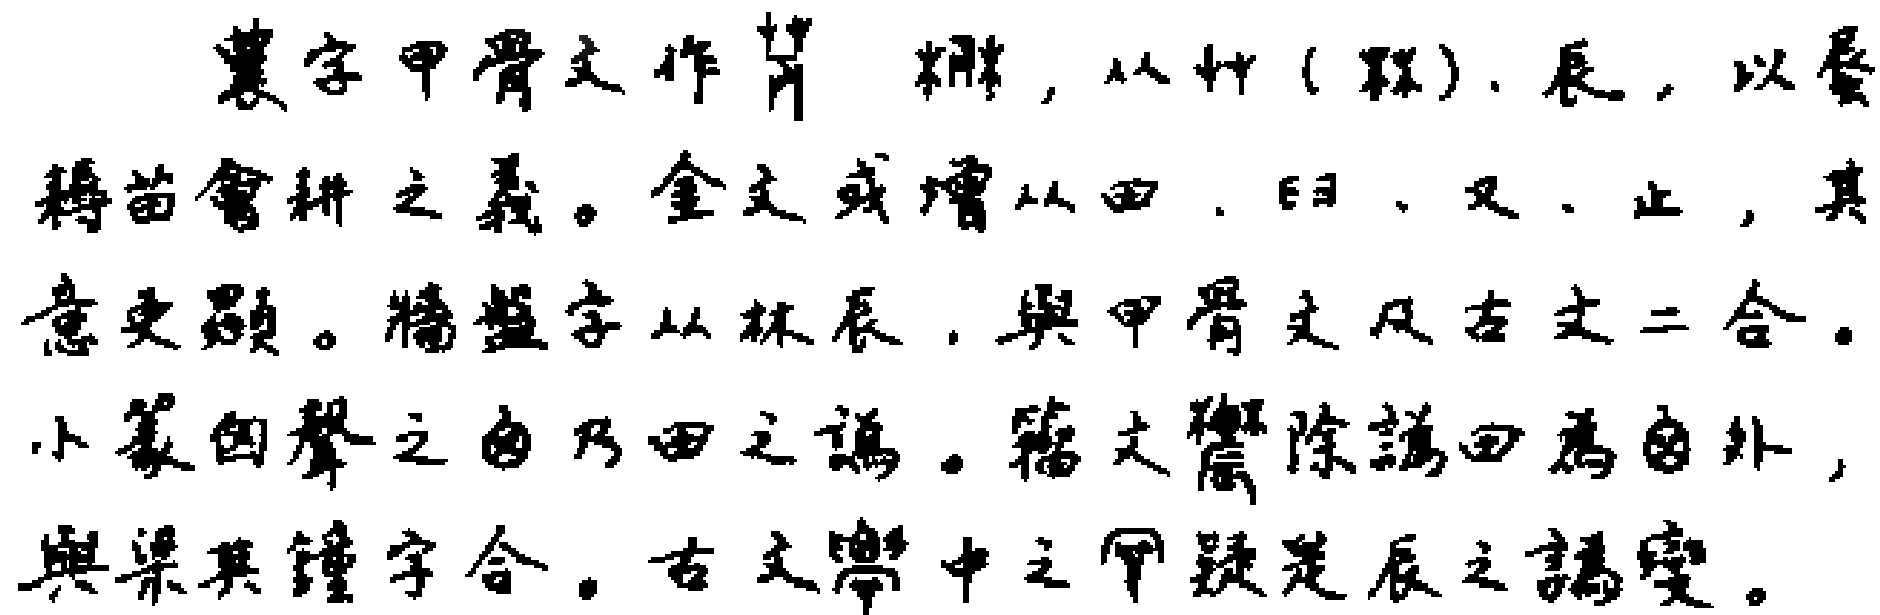 農字甲骨文作 , 从艸(林)、辰, 以蜃
耨苗會耕之義。金文或增从田、臼、又、止, 其
意更顯。牆盤字从林辰, 與甲骨文及古文二合。
小篆囟聲之囟乃田之譌。籀文 除譌田為囟外,
與梁其鐘字合。古文 中之 疑是辰之譌變。